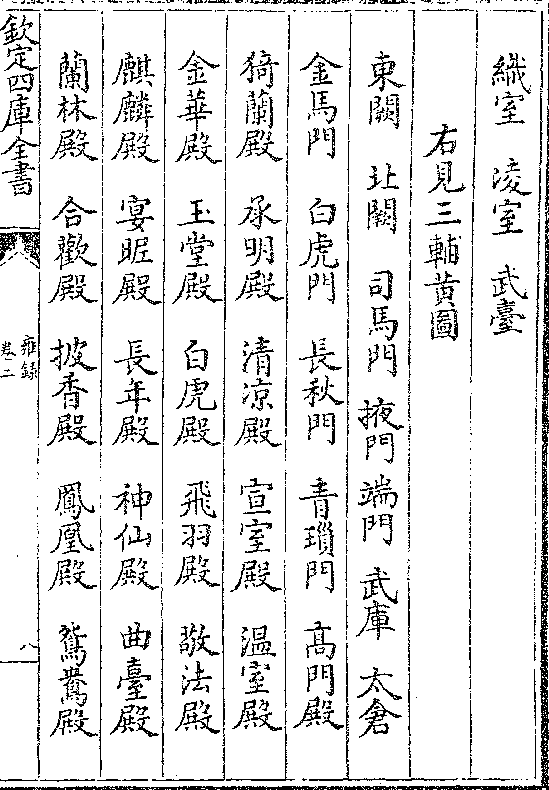 織室　凌室　武臺
右見三輔黄圖
東闕　北闕　司馬門　掖門　端門　武庫　太倉
金馬門　白虎門　長秋門　青瑣門　髙門殿
猗蘭殿　承明殿　清凉殿　宣室殿　温室殿
金華殿　玉堂殿　白虎殿　飛羽殿　敬法殿
麒麟殿　宴昵殿　長年殿　神仙殿　曲臺殿
蘭林殿　合歡殿　披香殿　鳳凰殿　鴛鴦殿
欽定四庫全書　雍録　卷二　八